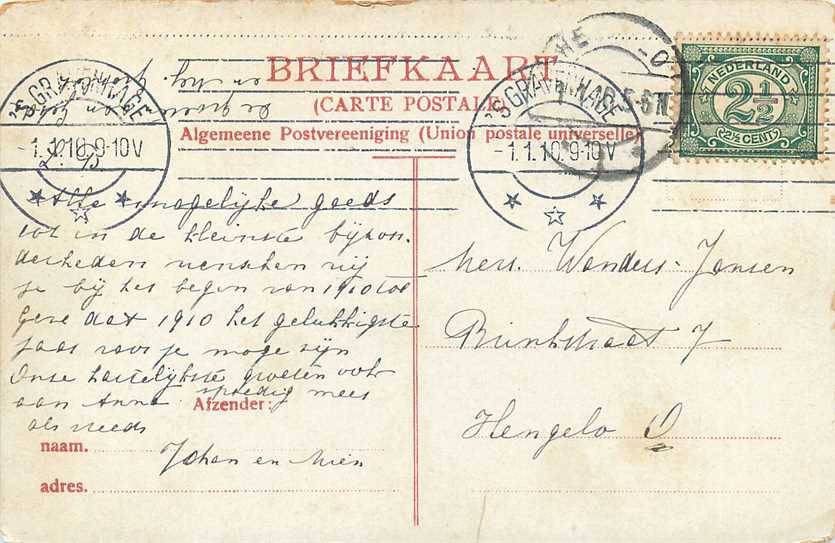 BRIEFKAART
(CARTE POSTALE)
Algemeene Postvereeniging (Union postale universelle)
'S GRAVENHAGE
-1.1.10.9-10V
'S GRAVENHAGE
-1.1.10.9-10V
5-6N
NEDERLAND
2½
2½ CENT
L. B.
Alle mogelijke goeds
tot in de kleinste bijzon-
derheden wenschen wij
je bij het begin van 1910 toe
Geve dat 1910 het gelukkigste
jaar voor je moge zijn
Onze hartelijkste groeten ook
aan Anna spoedig meer
als reeds
Afzender:
naam. Johan en Mien
adres.
Mevr. Wonders-Jansen
Brinkstraat 7
Hengelo O